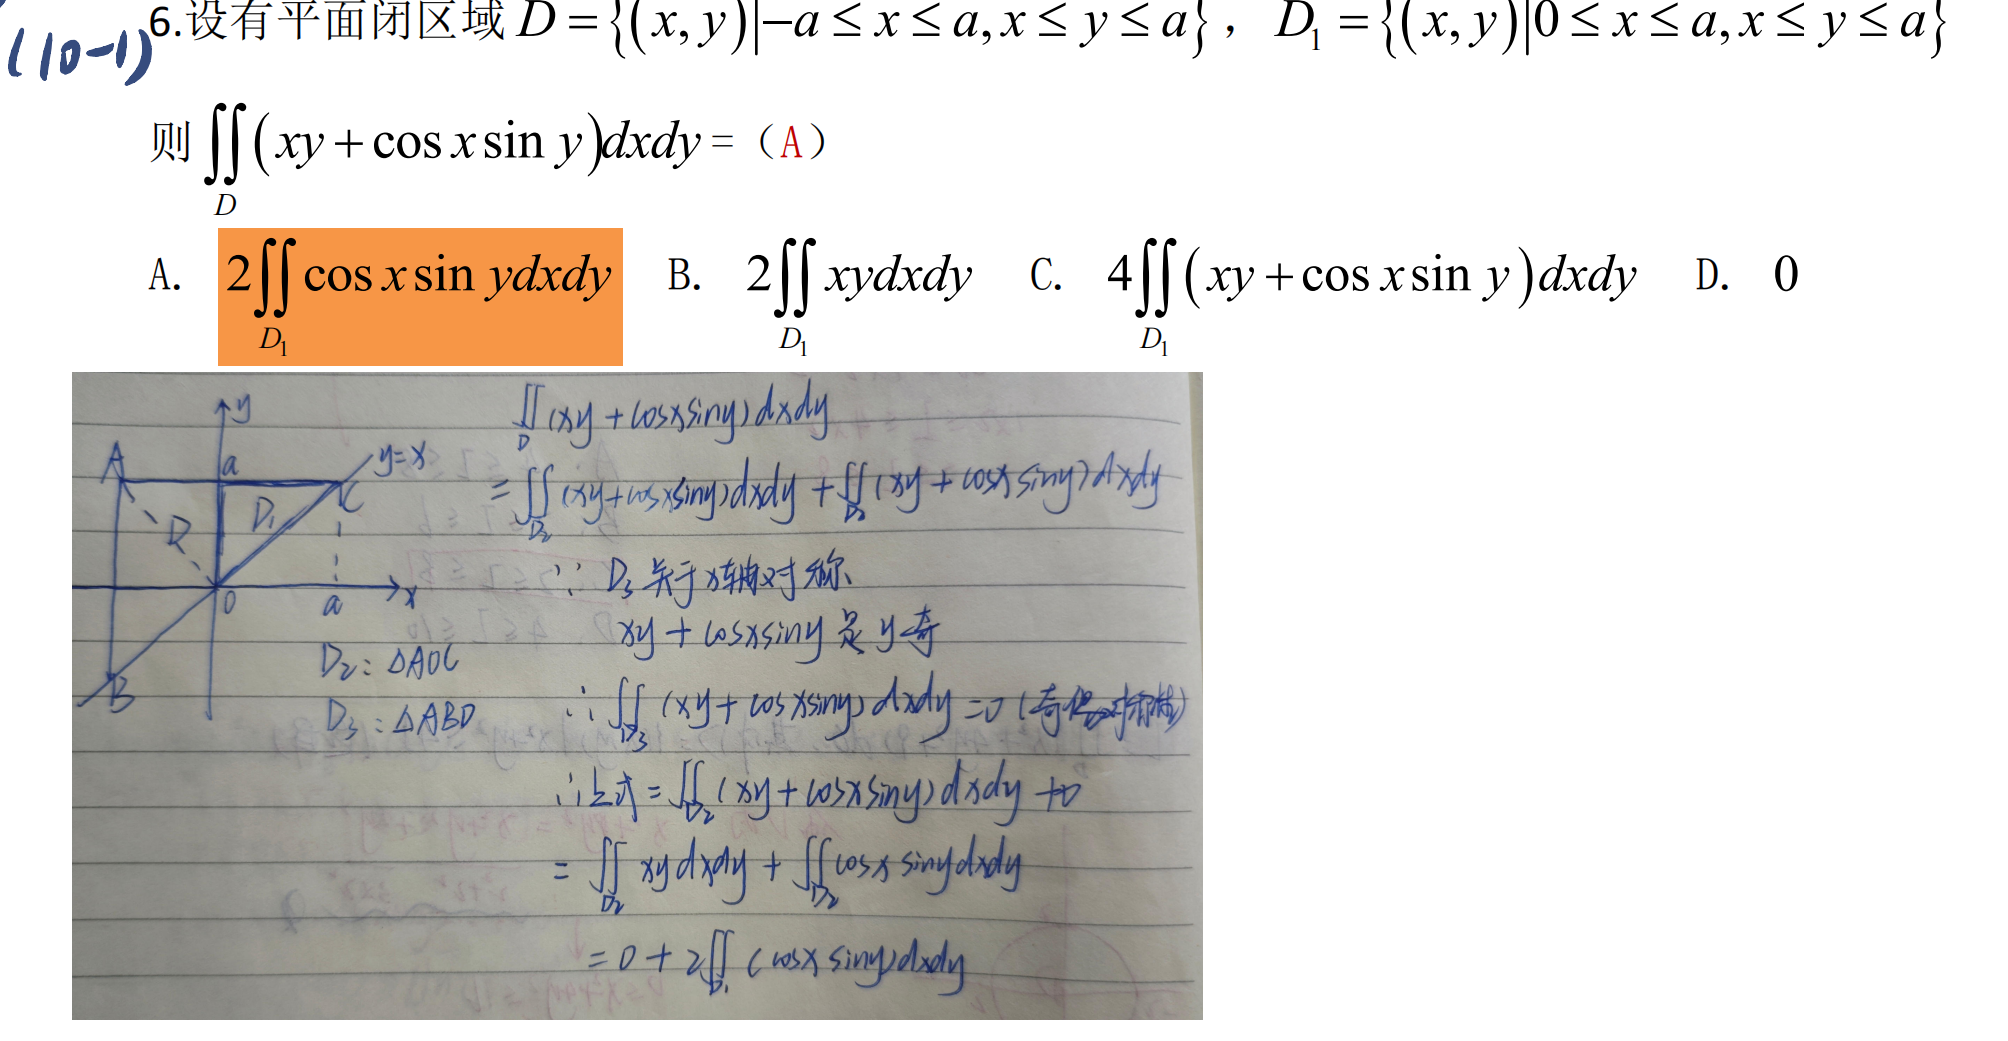 (10-1)
6.设有平面闭区域 D = {(x, y)|−a ≤ x ≤ a, x ≤ y ≤ a}， D₁ = {(x, y)|0 ≤ x ≤ a, x ≤ y ≤ a}
则 ∬_D (xy + cos x sin y)dxdy =（A）
A. 2∬_{D₁} cos x sin ydxdy B. 2∬_{D₁} xydxdy C. 4∬_{D₁} (xy + cos x sin y)dxdy D. 0
y
A a y=x
C
D D₁
0 a x
B
D₂: △AOC
D₃: △ABO
∬_D (xy + cosxsiny) dxdy
= ∬_{D₂} (xy+cosxsiny)dxdy + ∬_{D₃} (xy + cosxsiny)dxdy
∵ D₃关于x轴对称
xy + cosxsiny 是 y奇
∴ ∬_{D₃} (xy + cosxsiny) dxdy =0 (奇偶对称性)
∴上式 = ∬_{D₂} (xy+cosxsiny)dxdy +0
= ∬_{D₂} xydxdy + ∬_{D₂} cosx sinydxdy
= 0 + 2∬_{D₁} (cosx siny)dxdy